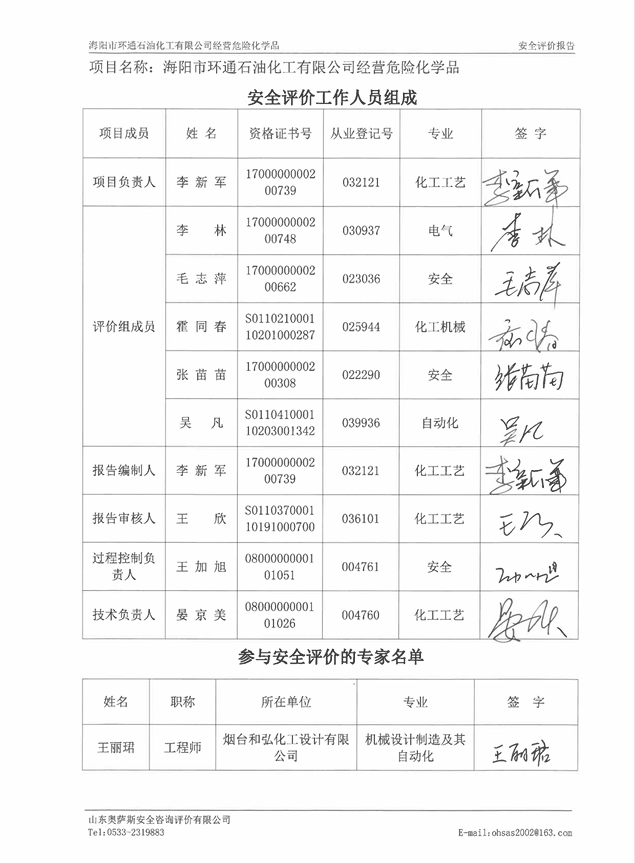 海阳市环通石油化工有限公司经营危险化学品 安全评价报告
项目名称：海阳市环通石油化工有限公司经营危险化学品
安全评价工作人员组成
项目成员 姓 名 资格证书号 从业登记号 专业 签 字
项目负责人 李 新 军 17000000002 00739 032121 化工工艺 李新军
评价组成员
李 林 17000000002 00748 030937 电气 李林
毛 志 萍 17000000002 00662 023036 安全 毛志萍
霍 同 春 S0110210001 10201000287 025944 化工机械
张 苗 苗 17000000002 00308 022290 安全 张苗苗
吴 凡 S0110410001 10203001342 039936 自动化 吴凡
报告编制人 李 新 军 17000000002 00739 032121 化工工艺 李新军
报告审核人 王 欣 S0110370001 10191000700 036101 化工工艺 王欣
过程控制负责人 王 加 旭 08000000001 01051 004761 安全
技术负责人 晏 京 美 08000000001 01026 004760 化工工艺
参与安全评价的专家名单
姓名 职称 所在单位 专业 签 字
王丽珺 工程师 烟台和弘化工设计有限公司 机械设计制造及其自动化 王丽珺
山东奥萨斯安全咨询评价有限公司
Tel:0533-2319883 E-mail:ohsas2002@163.com